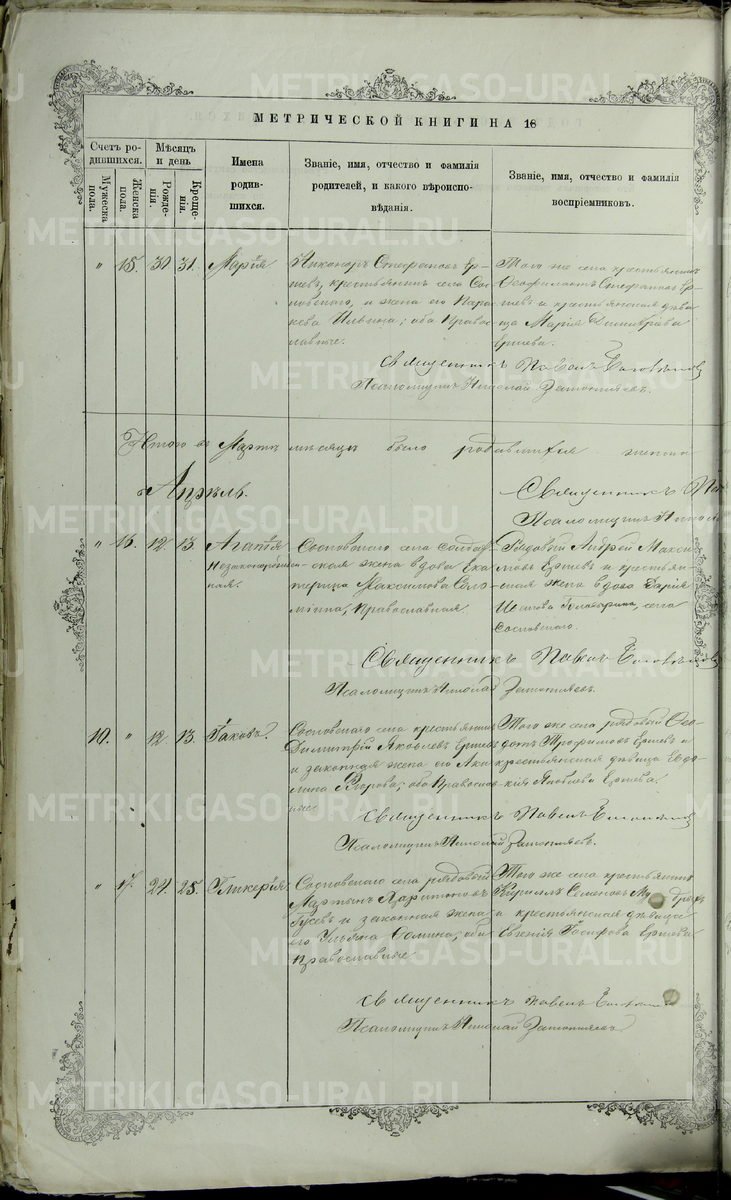 МЕТРИЧЕСКОЙ КНИГИ НА 18
Счетъ ро-
дившихся.
Мужеска
пола.
Женска
пола.
Мѣсяцъ
и день
Рожде-
нія.
Креще-
нія.
Имена
родив-
шихся.
Званіе, имя, отчество и фамилія
родителей, и какого вѣроиспо-
вѣданія.
Званіе, имя, отчество и фамилія
воспріемниковъ.
" 15. 31 31. Марія
Никаноръ Стефановъ Ер-
шевъ, крестьянинъ села Сос-
новскаго, и жена его Парас-
кева Ильина; оба Правос-
лавные.
Того же села крестьянинъ
Стефановъ Ер-
шевъ и крестьянская дѣви-
ца Марія Димитріева
Ершева.
Священникъ Павелъ
Псаломщикъ Николай
Итого въ Мартѣ мѣсяцѣ было родившихся женска
Апрѣль.
Священникъ Па
Псаломщикъ Никола
" 16. 12 13. Агапія
Незаконорожден-
ная.
Сосновскаго села солдат-
ская жена вдова Ека-
терина Максимова Соло-
мина, Православная
Рядовой Андрей Макси-
мовъ Ершевъ и крестьян-
ская жена вдова Дарія
села
Сосновскаго.
Священникъ Павелъ
Псаломщикъ Николай
10. " 12 13. Іаковъ.
Сосновскаго села крестьянинъ
Димитрій Яковлевъ Ершевъ
и законная жена его Аки-
лина Егорова; оба Правосла-
вные
Того же села рядовой Ѳео-
дотъ Трофимовъ Ершевъ и
крестьянская дѣвица Евдо-
кія Яковлева Ершева.
Священникъ Павелъ
Псаломщикъ Николай
" 17. 24. 25. Гликерія
Сосновскаго села рядовой
Мартынъ Харитоновъ
Гусевъ и законная жена
его Ульяна Ѳомина; оба
Православные
Того же села крестьянинъ
Кириллъ Семеновъ
и крестьянская дѣвица
Евгенія Іосифова Ершева
Священникъ Павелъ
Псаломщикъ Николай
METRIKI.GASO-URAL.RU